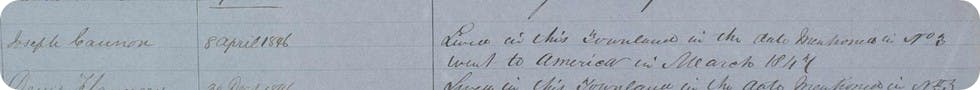 Joseph Cannon 8 April 1846 Lived in this Townland in the date mentioned in No 3
went to America in March 1847
Lived in this Townland in the date Mentioned in No 3